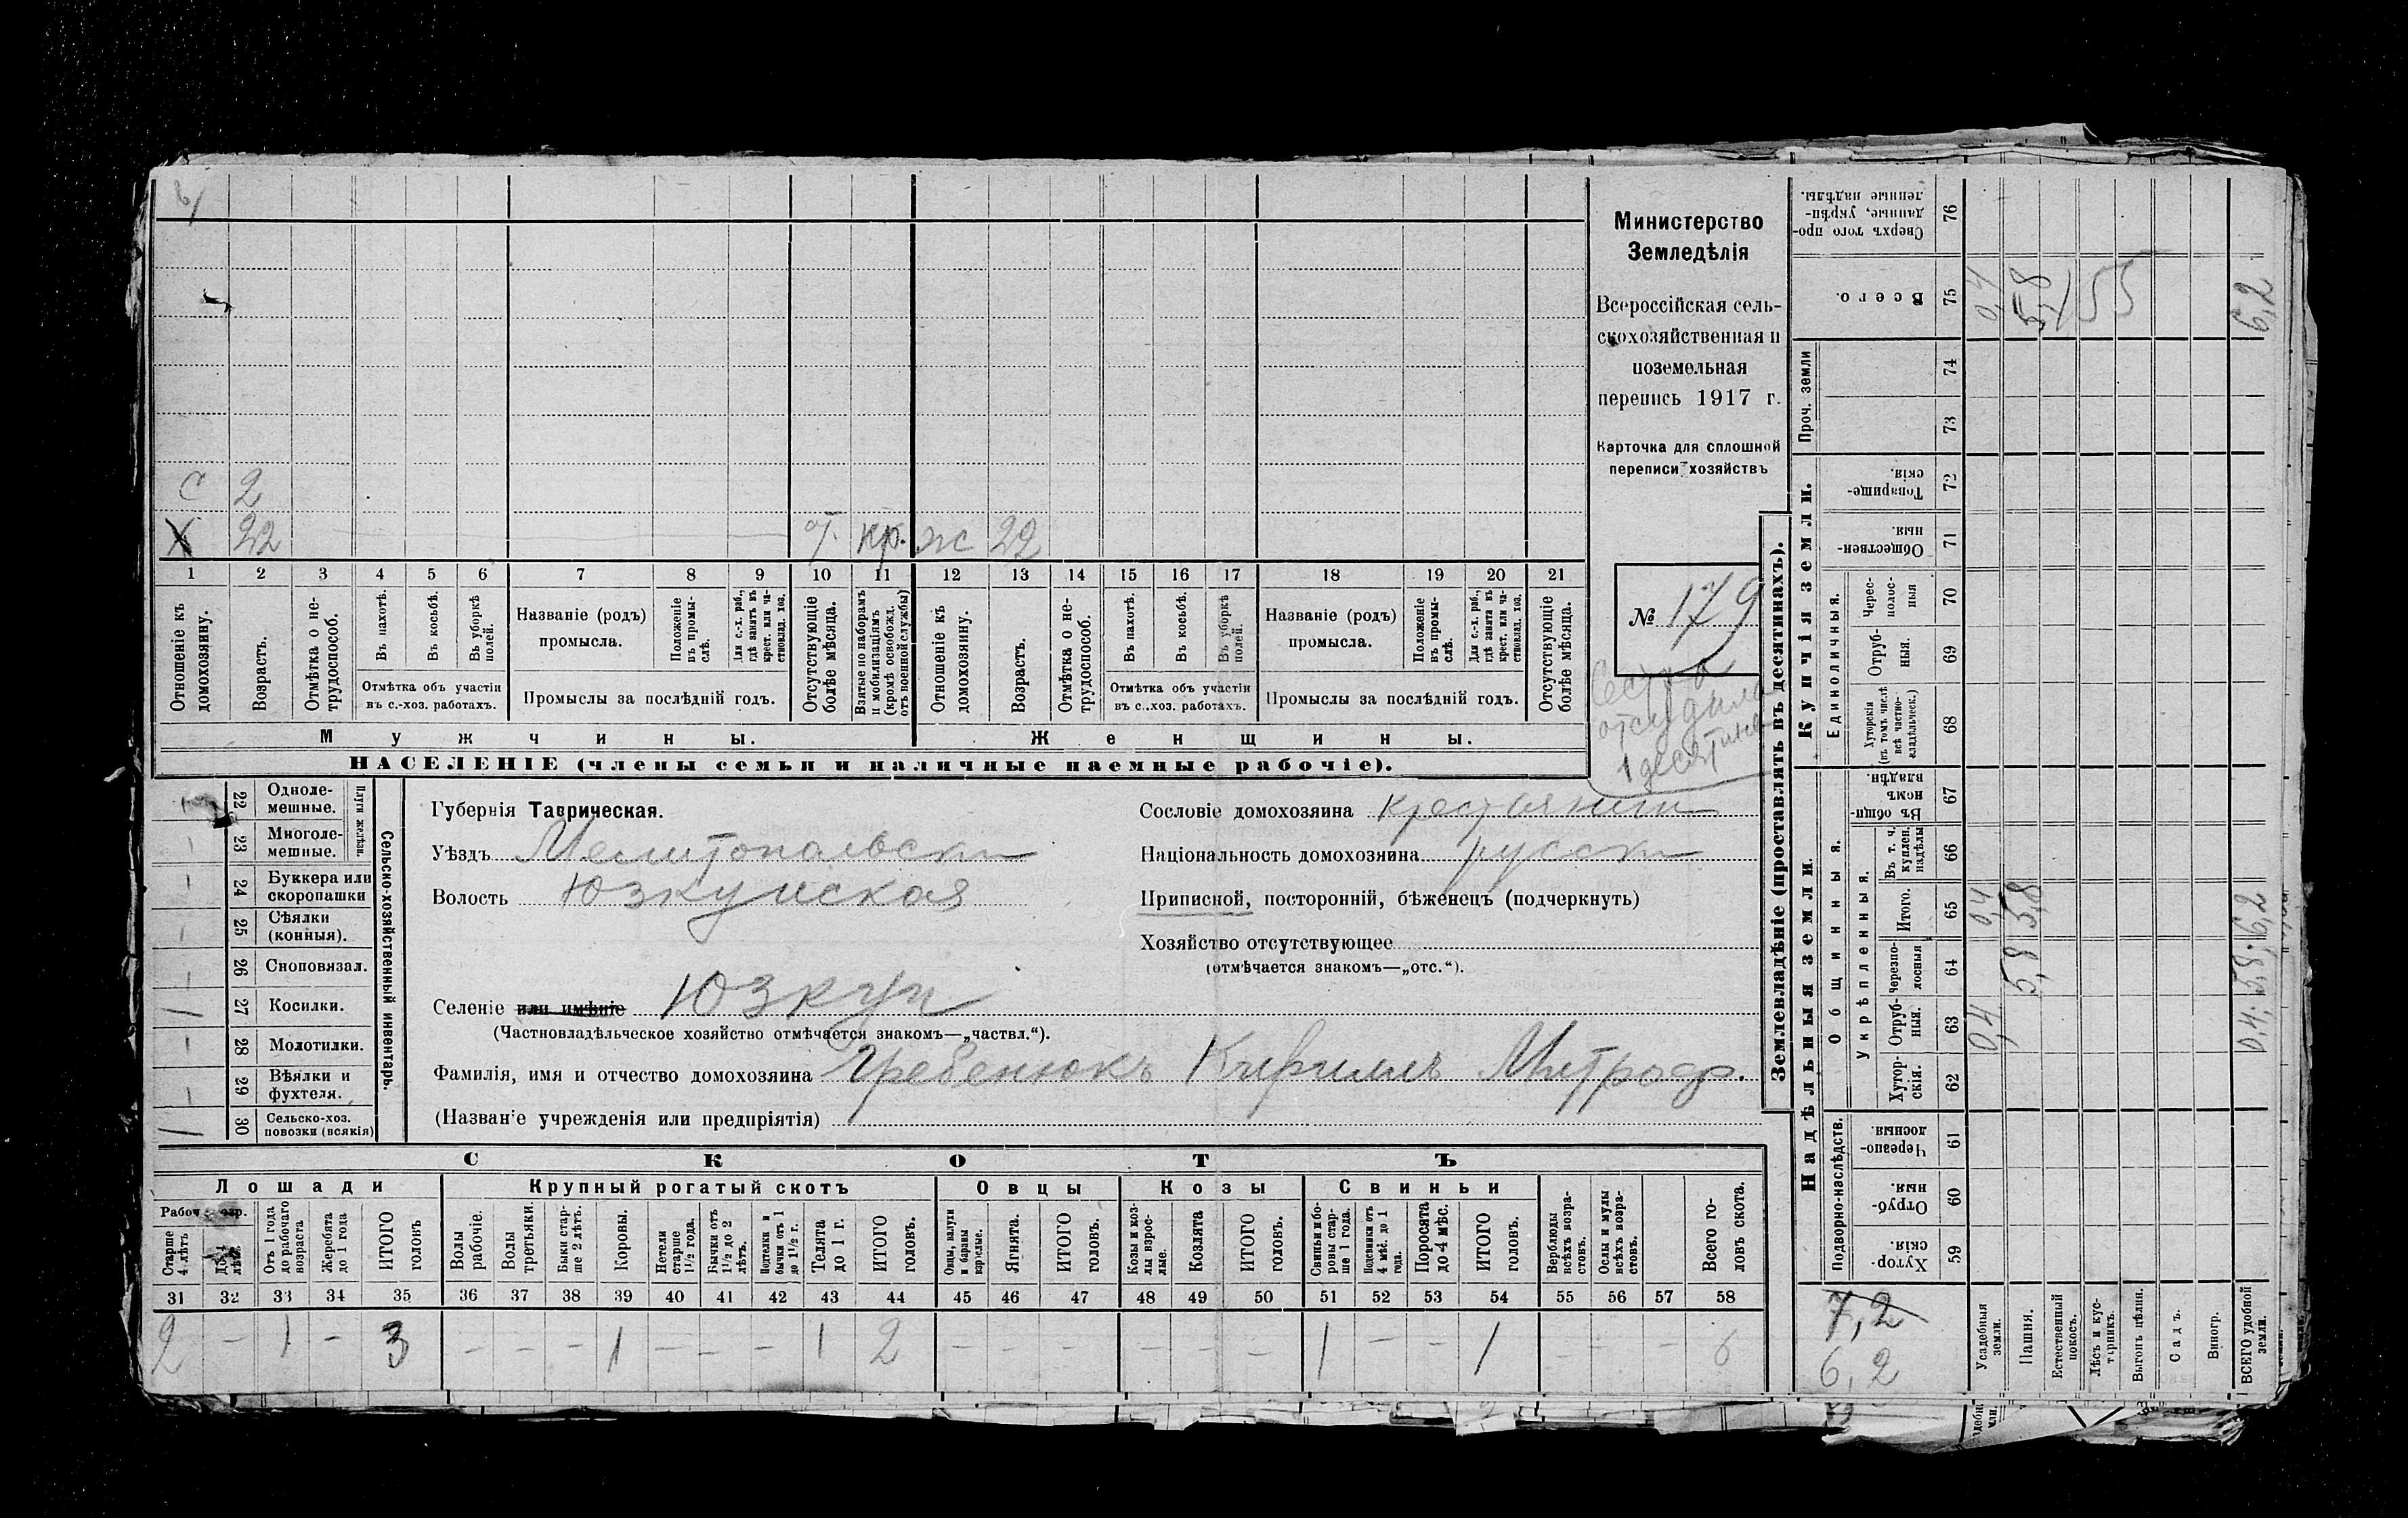 с 2
х 22 от. кр. ж 22
1 2 3 4 5 6 7 8 9 10 11 12 13 14 15 16 17 18 19 20 21
Отношеніе къ домохозяину.
Возрастъ.
Отмѣтка о не-трудоспособ.
Въ пахотѣ.
Въ косьбѣ.
Въ уборкѣ полей.
Отмѣтка объ участіи
въ с.-хоз. работахъ.
Названіе (родъ)
промысла.
Положеніе въ промы-слѣ.
Для с.-х. раб., гдѣ занятъ въ крест. или ча-стновлад. хоз.
Промыслы за послѣдній годъ.
Отсутствующіе болѣе мѣсяца.
Взятые по наборамъ и мобилизаціямъ (кромѣ освобожд. отъ военной службы)
Отношеніе къ домохозяину.
Возрастъ.
Отмѣтка о не-трудоспособ.
Въ пахотѣ.
Въ косьбѣ.
Въ уборкѣ полей.
Отмѣтка объ участіи
въ с.-хоз. работахъ.
Названіе (родъ)
промысла.
Положеніе въ промы-слѣ.
Для с.-х. раб., гдѣ занята въ крест. или ча-стновлад. хоз.
Промыслы за послѣдній годъ.
Отсутствующіе болѣе мѣсяца.
Мужчины. Женщины.
НАСЕЛЕНІЕ (члены семьи и наличные наемные рабочіе).
Министерство
Земледѣлія
Всероссійская сель-
скохозяйственная и
поземельная
перепись 1917 г.
Карточка для сплошной
переписи хозяйствъ
№ 179
Сестра
отсудила
1 десятину
Сельско-хозяйственный инвентарь.
Плуги желѣзн.
22 Одноле-мешные.
– 23 Многоле-мешные.
– 24 Буккера или скоропашки
– 25 Сѣялки (конныя).
– 26 Сноповязал.
1 27 Косилки.
– 28 Молотилки.
– 29 Вѣялки и фухтеля.
1 30 Сельско-хоз. повозки (всякія)
Губернія Таврическая.
Уѣздъ Мелитопольски
Волость Юзкуйская
Селеніе или имѣніе Юзкуи
(Частновладѣльческое хозяйство отмѣчается знакомъ—„частвл.“).
Фамилія, имя и отчество домохозяина Гребенюкъ Кириллъ Митроф.
(Названіе учрежденія или предпріятія)
Сословіе домохозяина крестьянин
Національность домохозяина русски
Приписной, посторонній, бѣженецъ (подчеркнуть)
Хозяйство отсутствующее
(отмѣчается знакомъ—„отс.“).
СКОТЪ
Лошади Крупный рогатый скотъ Овцы Козы Свиньи
Старше 4 лѣтъ
До 4 лѣтъ
Отъ 1 года до рабочаго возраста
Жеребята до 1 года
ИТОГО головъ
Волы рабочіе.
Волы третьяки.
Быки стар-ше 2 лѣтъ.
Коровы.
Нетели старше 1½ года.
Бычки отъ 1½ до 2 лѣтъ.
Подтелки и бычки отъ 1 до 1½ г.
Телята до 1 г.
ИТОГО головъ.
Овцы, валухи и бараны взрослые.
Ягнята.
ИТОГО головъ.
Козы и коз-лы взрос-лые.
Козлята
ИТОГО головъ.
Свиньи и бо-ровы стар-ше 1 года.
Подсвинки отъ 4 мѣс. до 1 года.
Поросята до 4 мѣс.
ИТОГО головъ.
Верблюды всѣхъ возра-стовъ.
Ослы и мулы всѣхъ возра-стовъ.
Всего го-ловъ скота.
31 32 33 34 35 36 37 38 39 40 41 42 43 44 45 46 47 48 49 50 51 52 53 54 55 56 57 58
2 – 1 – 3 – – – 1 – – – 1 2 – – – – – – 1 – – 1 – – – 6
Землевладѣніе (проставлять въ десятинахъ).
Надѣльныя земли. Купчія земли. Проч. земли
Подворно-наслѣдств.
Общинныя.
Укрѣпленныя.
Единоличныя.
Хутор-скія. 59
Отруб-ныя. 60
Черезпо-лосныя. 61
Хутор-скія. 62
Отруб-ныя. 63
Черезпо-лосныя 64
Итого. 65
Въ т. ч. куплен. надѣлы 66
Въ общи-номъ владѣн. 67
Хуторскія (въ томъ числѣ всѣ частно-владѣльческ.) 68
Отруб-ныя. 69
Черес-полос-ныя 70
Обществен-ныя 71
Товарище-скія. 72
73
74
Всего. 75
Сверхъ того про-данные, укрѣп-ленные надѣлы. 76
7,2
6,2
Усадебныя земли. 0,4 0,4 0,4
Пашня. 5,8 5,8 5,8
Естественный покосъ.
Лѣсъ и кус-тарникъ.
Выгонъ цѣлин.
Садъ.
Виногр.
ВСЕГО удобной земли. 0,4. 5,8. 6,2 6,2
55